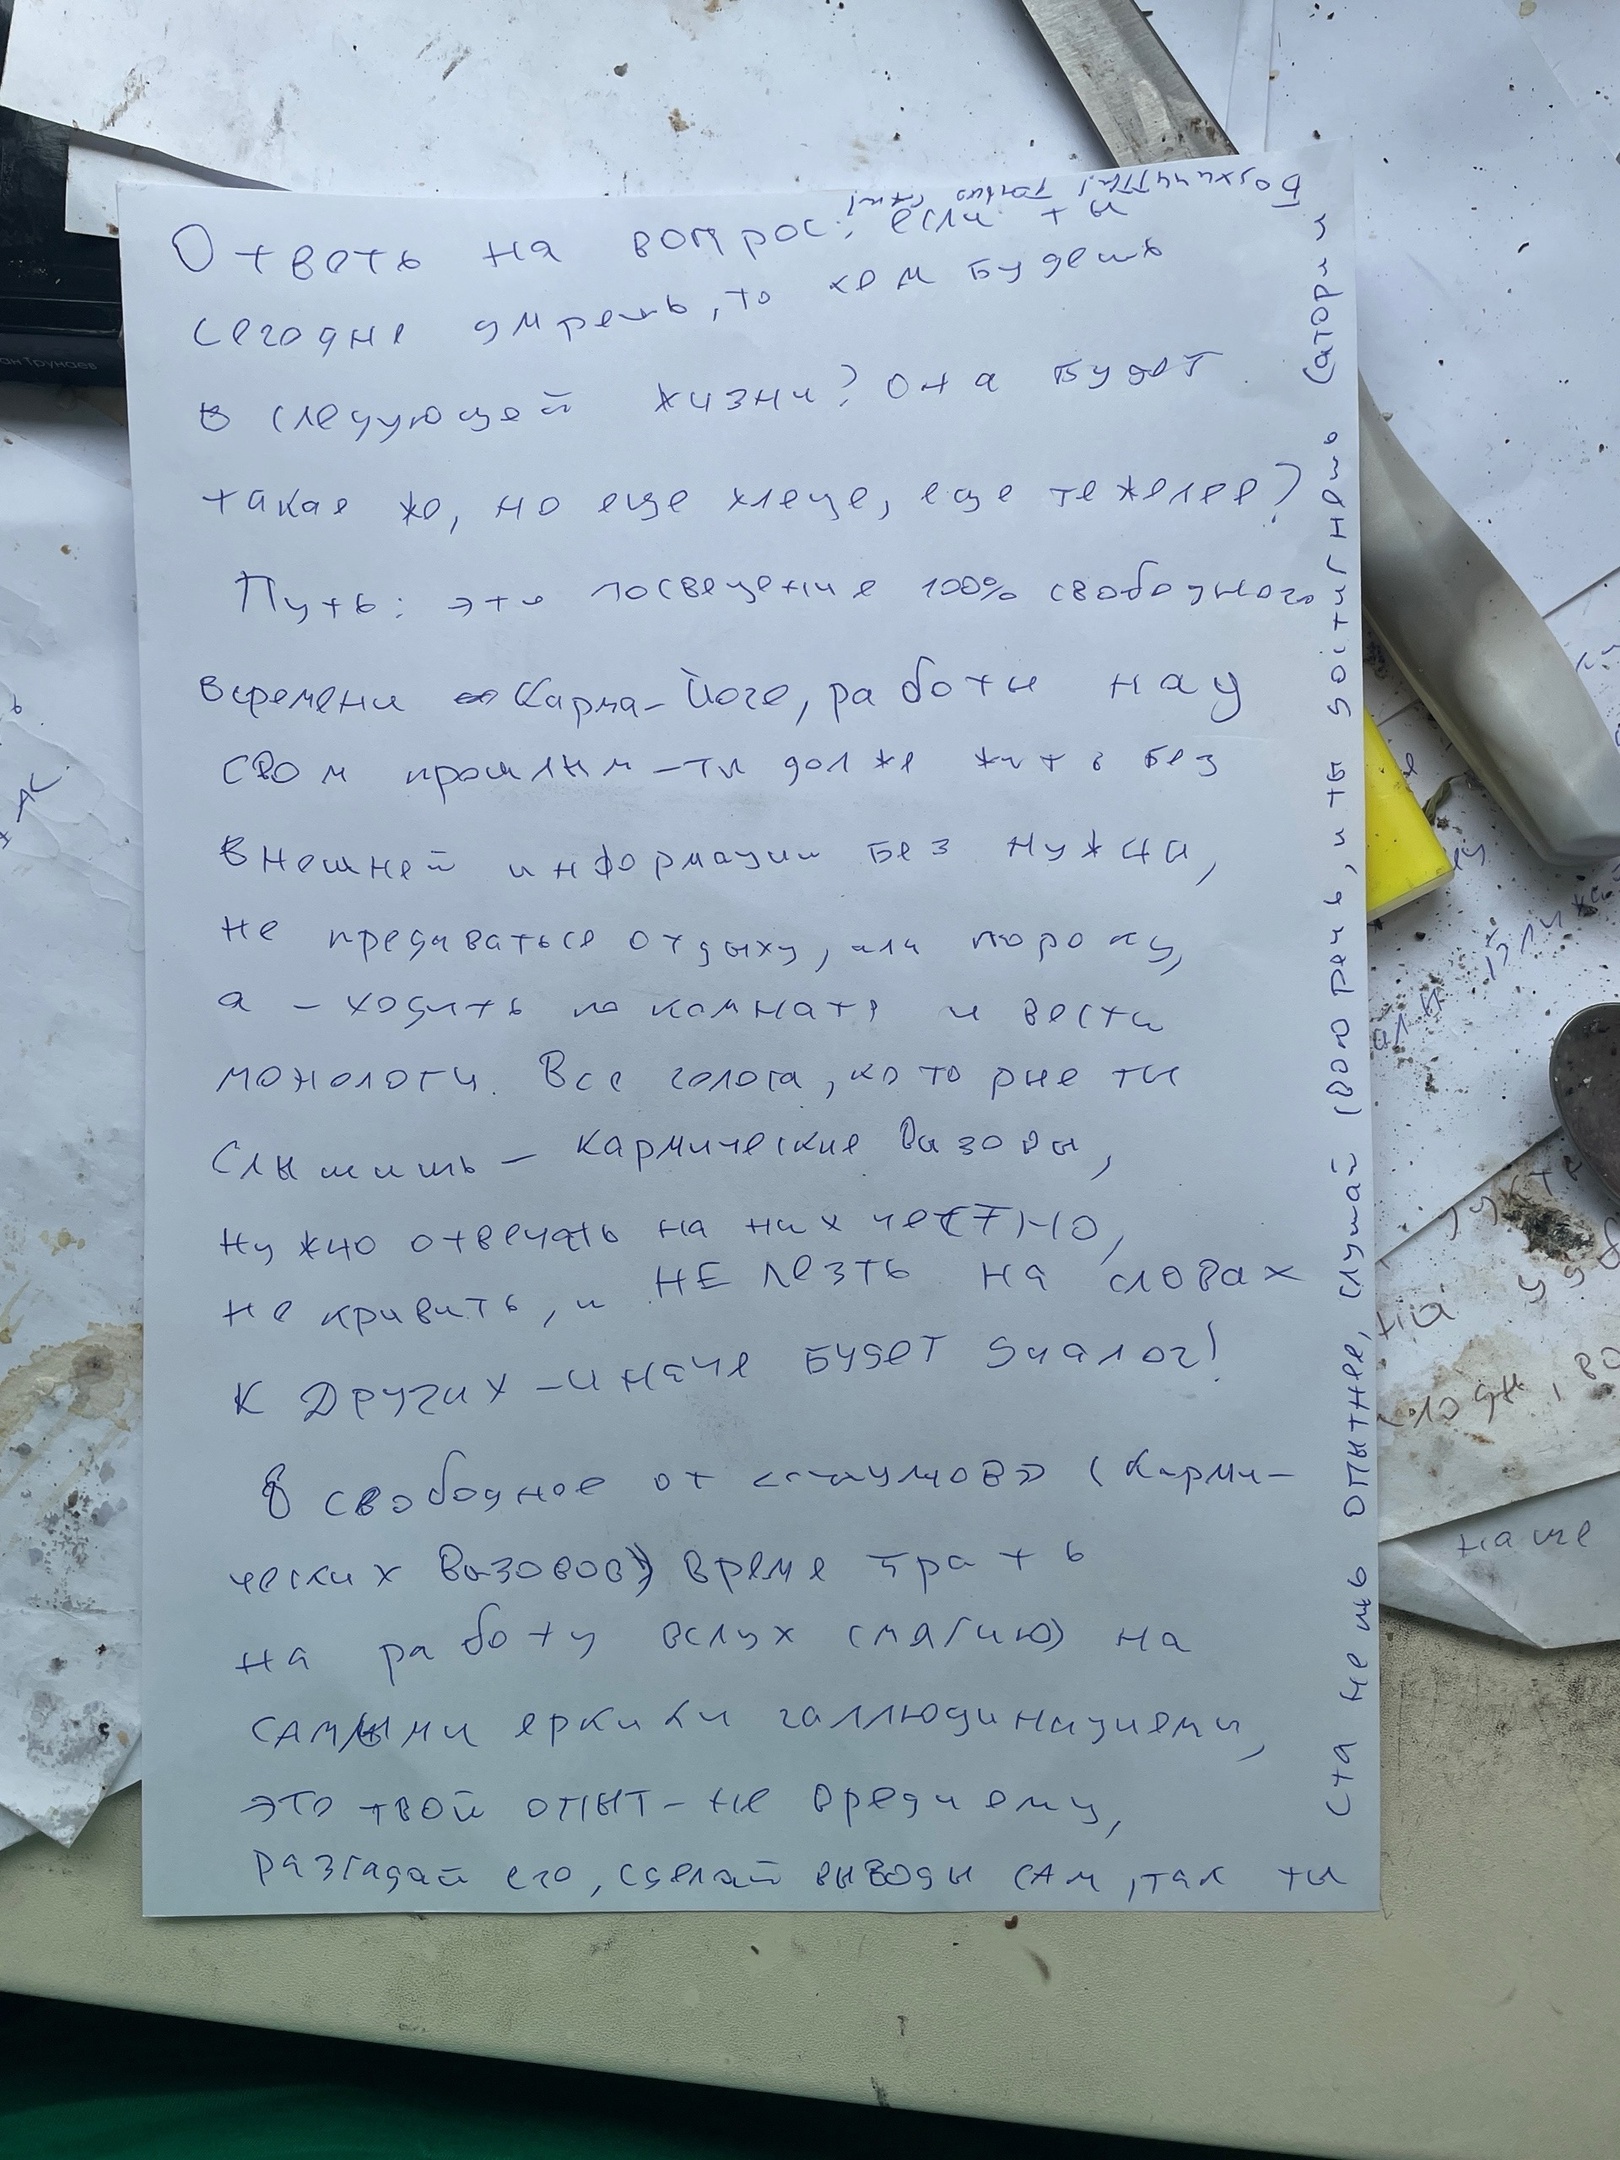 Ответь на вопрос: если ты
сегодне умрешь, то кем будешь
в следующей жизни? Она будет
такае же, но еще хлеще, еще тежелее?
Путь: это посвещение 100% свободного
времени Карма-Йоге, работы над
свом прошлым - ты долже жить без
внешней информации без нужды,
не предаваться отдыху, или пороку,
а - ходить по комнате и вести
монологи. Все голоса, которые ты
слышишь - кармические вызовы,
нужно отвечать на них честно,
не кривить, и НЕ лезть на словах
к других - иначе будет диалог!
В свободное от (карми-
ческих вызовов) время трать
на работу вслух (магию) на
самыми еркики галлюдинациеми,
это твой опыт - не вреди ему,
разгадай его, сделай выводы сам, так ты
станешь опытнее, слушай свою речь, и ты достигнешь Сатори и
Бодхичитты! Только сти!
ан Трунаев
наше